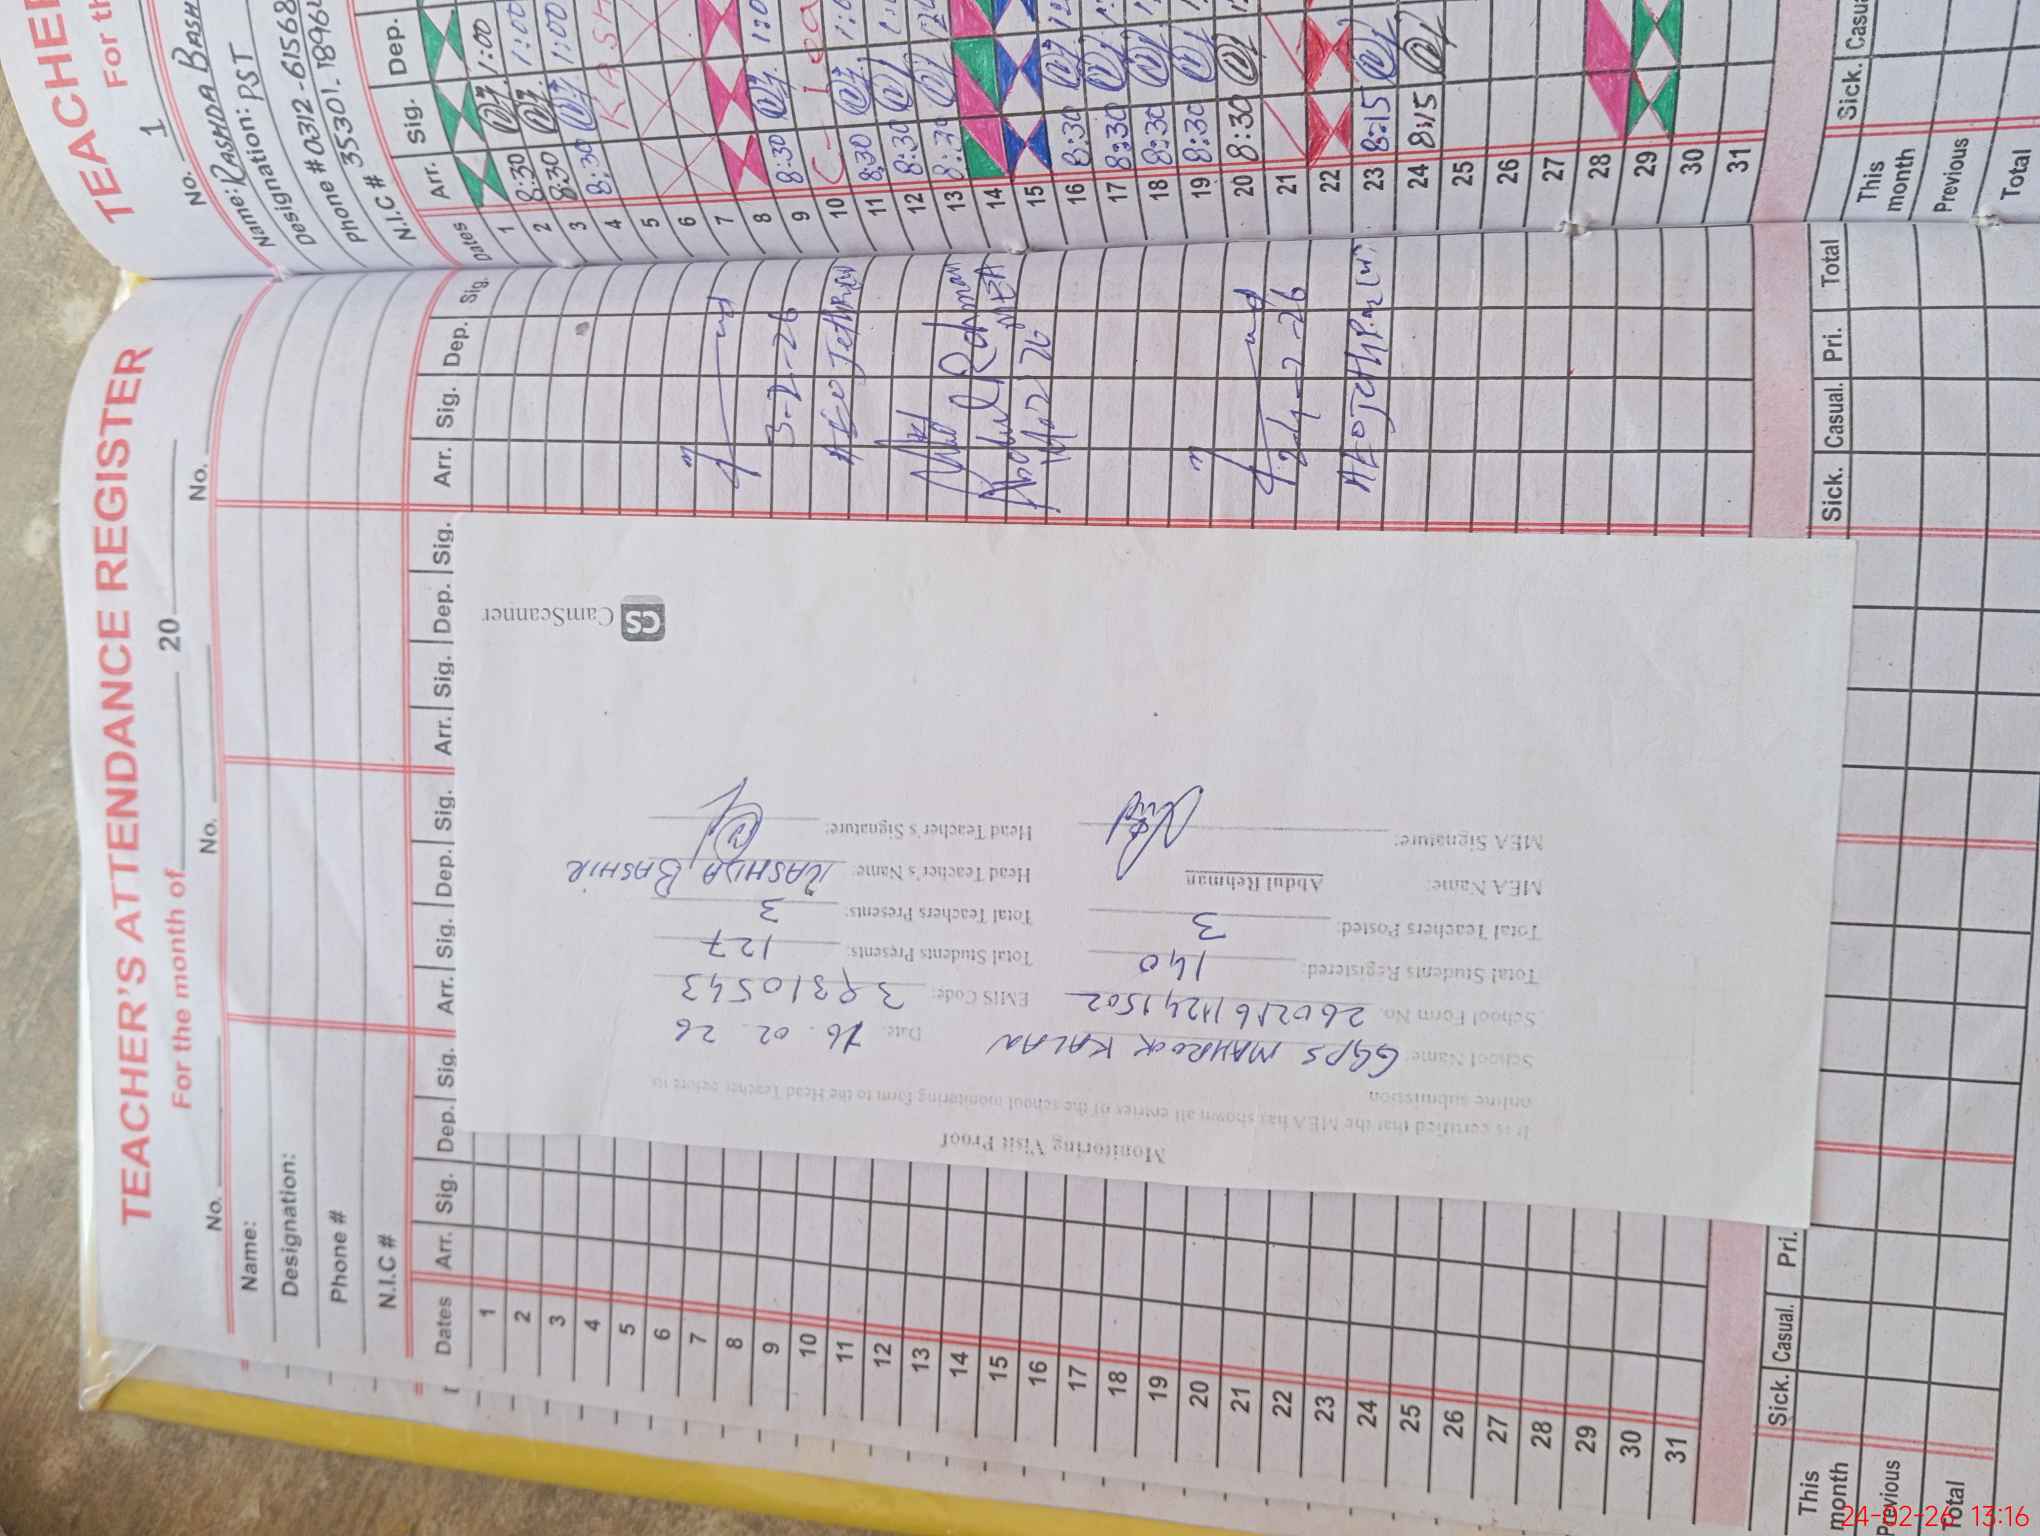 TEACHER'S ATTENDANCE REGISTER
For the month of 20
No. No. No.
Name:
Designation:
Phone #
N.I.C #
Dates Arr. Sig. Dep. Sig. Arr. Sig. Dep. Sig. Arr. Sig. Dep. Sig. Arr. Sig. Dep. Sig.
1
2
3
4
5
6
7
8
9
10
11
12
13
14
15
16
17
18
19
20
21
22
23
24
25
26
27
28
29
30
31
Sick. Casual. Pri.
Sick. Casual. Pri. Total
This month
Previous
Total
3-2-26
AEO
Abdul Rehman
MEA
24-2-26
AEO
Monitoring Visit Proof
It is certified that the MEA has shown all entries of the school monitoring form to the Head Teacher before its
online submission
School Name: GGPS MAHROOK KALAN Date: 16.02.26
School Form No. EMIS Code: 39310543
Total Students Registered: 140 Total Students Presents: 127
Total Teachers Posted: 3 Total Teachers Presents: 3
MEA Name: Abdul Rehman Head Teacher's Name: RASHIDA BASHIR
MEA Signature: Head Teacher's Signature:
CS CamScanner
TEACHER
For th
No. 1
Name: RASHIDA BASH
Designation: PST
Phone # 0312-61568
N.I.C # 35301-1896
Dates Arr. Sig. Dep.
1
2 8:30 1:00
3 8:30 1:00
4 8:30 1:00
5
6
7
8
9 8:30
10
11 8:30
12 8:30
13 8:30
14
15
16 8:30
17 8:30
18 8:30
19 8:30
20 8:30
21
22
23 8:15
24 8:15
25
26
27
28
29
30
31
Sick. Casua
This month
Previous
Total
24-02-26 13:16